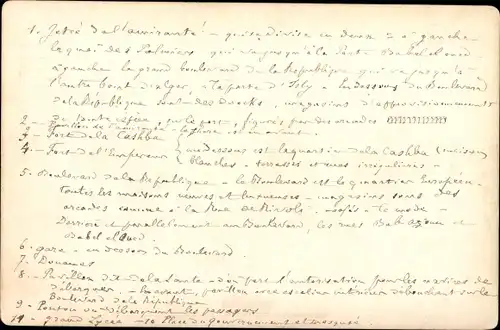 1. Jetée de l'amirauté - qui se divise en deux = à gauche
le quai des Palmiers qui va jusqu'à la Porte Babel oued
à gauche le grand boulevard de la République qui va jusqu'à
l'autre bout d'Alger, la porte d'Isly - Au dessous du Boulevard
de la République sont des docks, magasins d'approvisionnements
de toute espèce, sur le port, figurés par des arcades
2 - Pavillon de l'amirauté - le phare est en avant.
3 - Fort de la Casbha
4. - Fort de l'Empereur { au dessous est le quartier de la Casbha (maisons
blanches - terrasses et rues irrégulières -
5. Boulevard de la République - le Boulevard est le quartier Européen -
toutes les maisons neuves et luxueuses - magasins sous des
arcades comme à la Rue de Rivoli - cafés - le monde -
Derrière et parallèlement au Boulevard, les rues Bab azoun et
Babel oued.
6 - gare - en dessous du Boulevard
7 - Douanes
8. - Pavillon dit de la Santé - d'où part l'autorisation pour les navires de
débarquer. - En avant, pavillon avec escalier intérieur débouchant sur le
Boulevard de la République
9 - Ponton où débarquent les passagers
grand Lycée - Place du gouvernement et mosquée